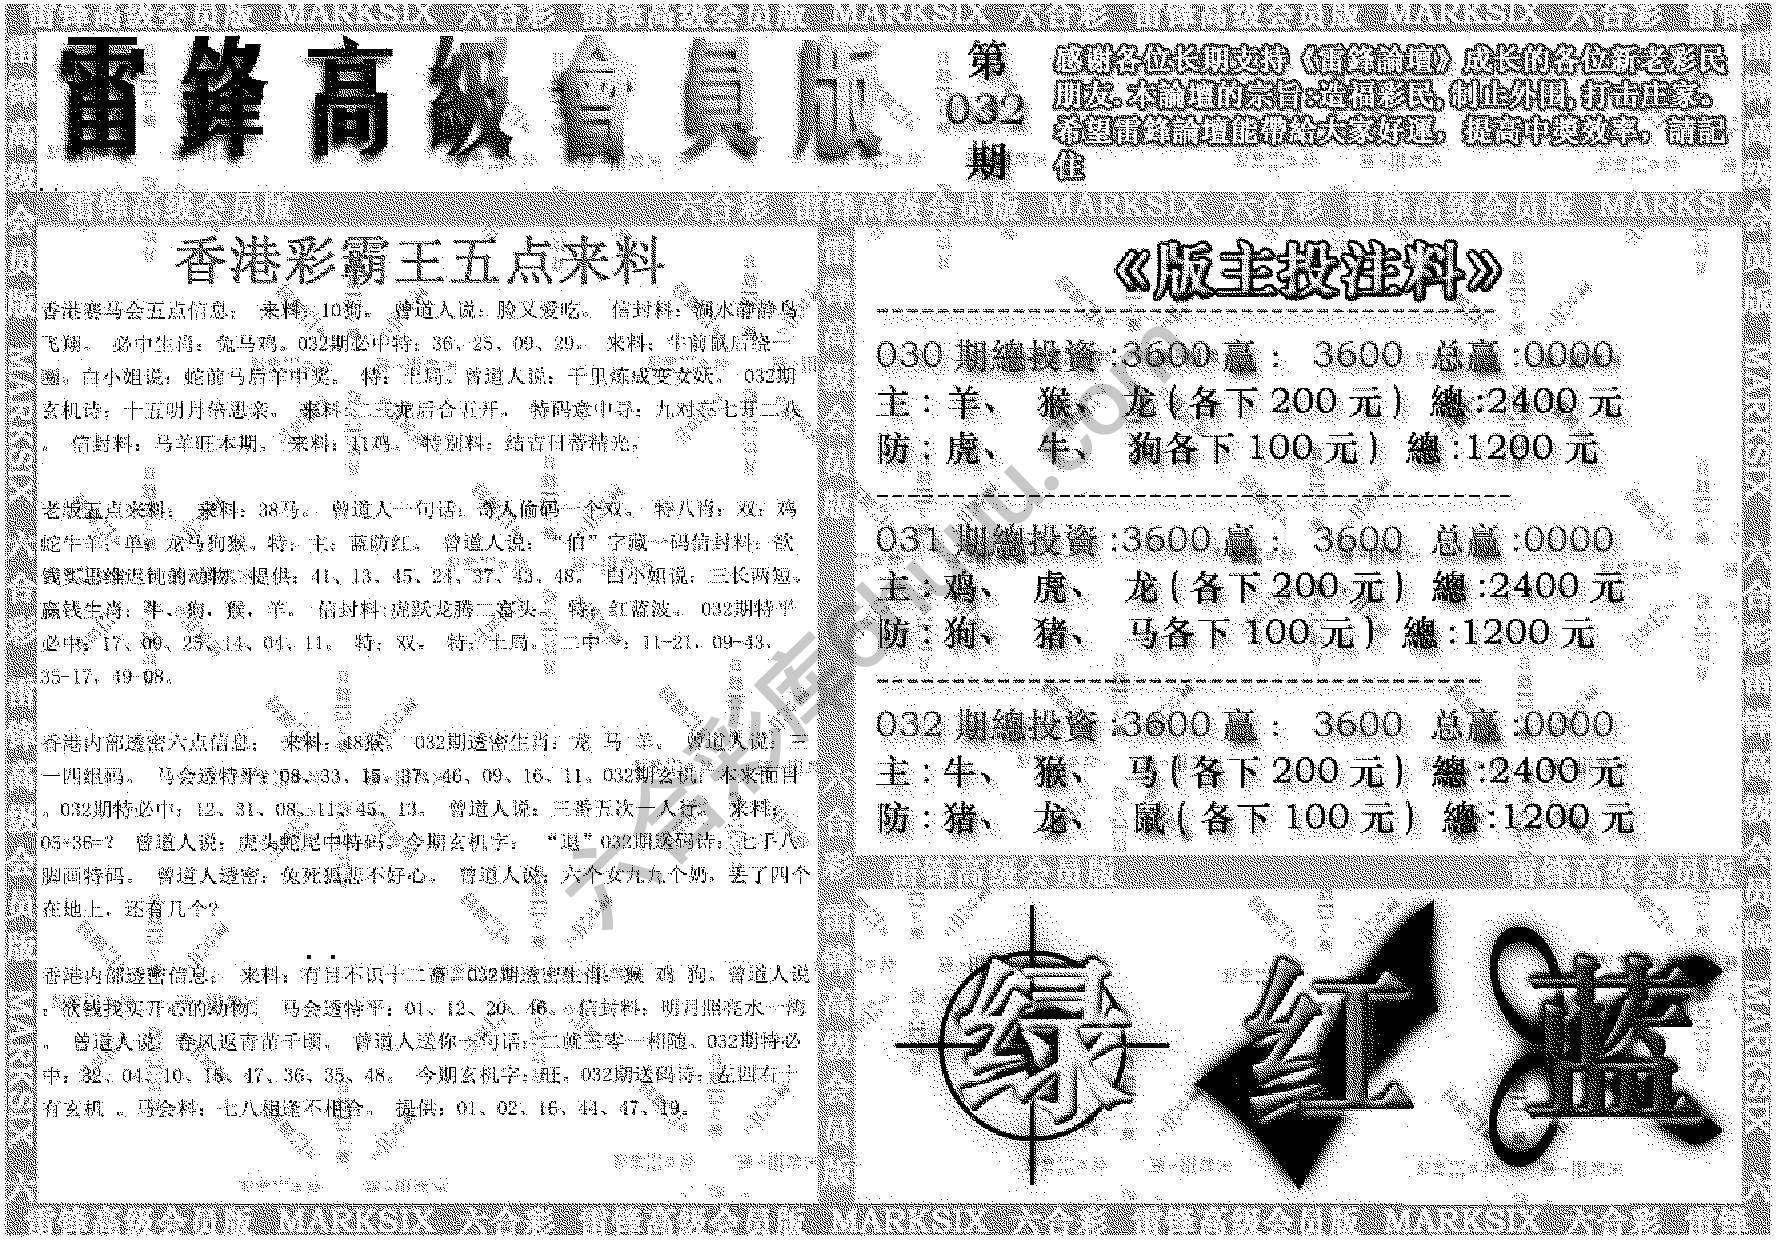 雷鋒高級會員版
第
032
期
感谢各位长期支持《雷鋒論壇》成长的各位新老彩民
朋友.本論壇的宗旨:造福彩民,制止外围,打击庄家.
希望雷鋒論壇能帶給大家好運，提高中奖效率，請記
住
香港彩霸王五点来料
香港赛马会五点信息： 来料：10狗。 曾道人说：脸又爱吃。 信封料：湖水静静鸟
飞翔。 必中生肖：兔马鸡。032期必中特：36、25、09、29。 来料：牛前鼠后绕一
圈。白小姐说：蛇前马后羊中奖。 特：土局。曾道人说：千里炼成变女妖。 032期
玄机诗：十五明月倍思亲。 来料：二三龙后合五开。 特码意中寻：九对 七廿二八
。 信封料：马羊旺本期。 来料：11鸡。 特别料：结吉日带精光。
老版五点来料： 来料：38马。 曾道人一句话：奇人偷码一个双。 特八肖：双：鸡
蛇牛羊，单：龙马狗猴。特：主：蓝防红。 曾道人说：“伯”字藏一码信封料：欲
钱买思维迟钝的动物。提供：41、13、45、24、37、43、48。 白小姐说：三长两短。
赢钱生肖：牛、狗、猴、羊。 信封料:虎跃龙腾二嘉头。 特：红蓝波。 032期特平
必中：17、09、25、14、04、11。 特：双。 特：土局。 二中一：11-21，09-43，
35-17，49-08。
香港内部透密六点信息： 来料：48猴。 032期透密生肖：龙 马 羊。 曾道人说：三
一四跟码。 马会透特平：08、33、15、37、46、09、16、11。032期玄机：本来面目
。032期特必中：12、31、08、11、45、13。 曾道人说：三番五次一人行。 来料：
05+36=? 曾道人说：虎头蛇尾中特码。今期玄机字： “退”032期送码诗：七手八
脚画特码。 曾道人透密：兔死狐悲不好心。 曾道人说：六个女九九个奶，丢了四个
在地上，还有几个?
香港内部透密信息： 来料：有目不识十二畜。032期透密生肖：猴 鸡 狗。曾道人说
：欲钱找买开心的动物。 马会透特平：01、12、20、46。 信封料：明月照亮水一湾
。 曾道人说：春风返青苗千顷。 曾道人送你一句话：二就三零一相随。032期特必
中：32、04、10、18、47、36、35、48。 今期玄机字：旺。032期送码诗：左四右十
有玄机 。马会料：七八相逢不相合。 提供：01、02、16、44、47、19。
《版主投注料》
030期總投資:3600赢： 3600 总赢:0000
主：羊、 猴、 龙(各下200元) 總:2400元
防：虎、 牛、 狗各下100元) 總:1200元
031期總投資:3600赢： 3600 总赢:0000
主：鸡、 虎、 龙(各下200元) 總:2400元
防：狗、 猪、 马各下100元) 總:1200元
032期總投資:3600赢： 3600 总赢:0000
主：牛、 猴、 马(各下200元) 總:2400元
防：猪、 龙、 鼠(各下100元) 總:1200元
绿 红 蓝
六合彩库 6huu.com